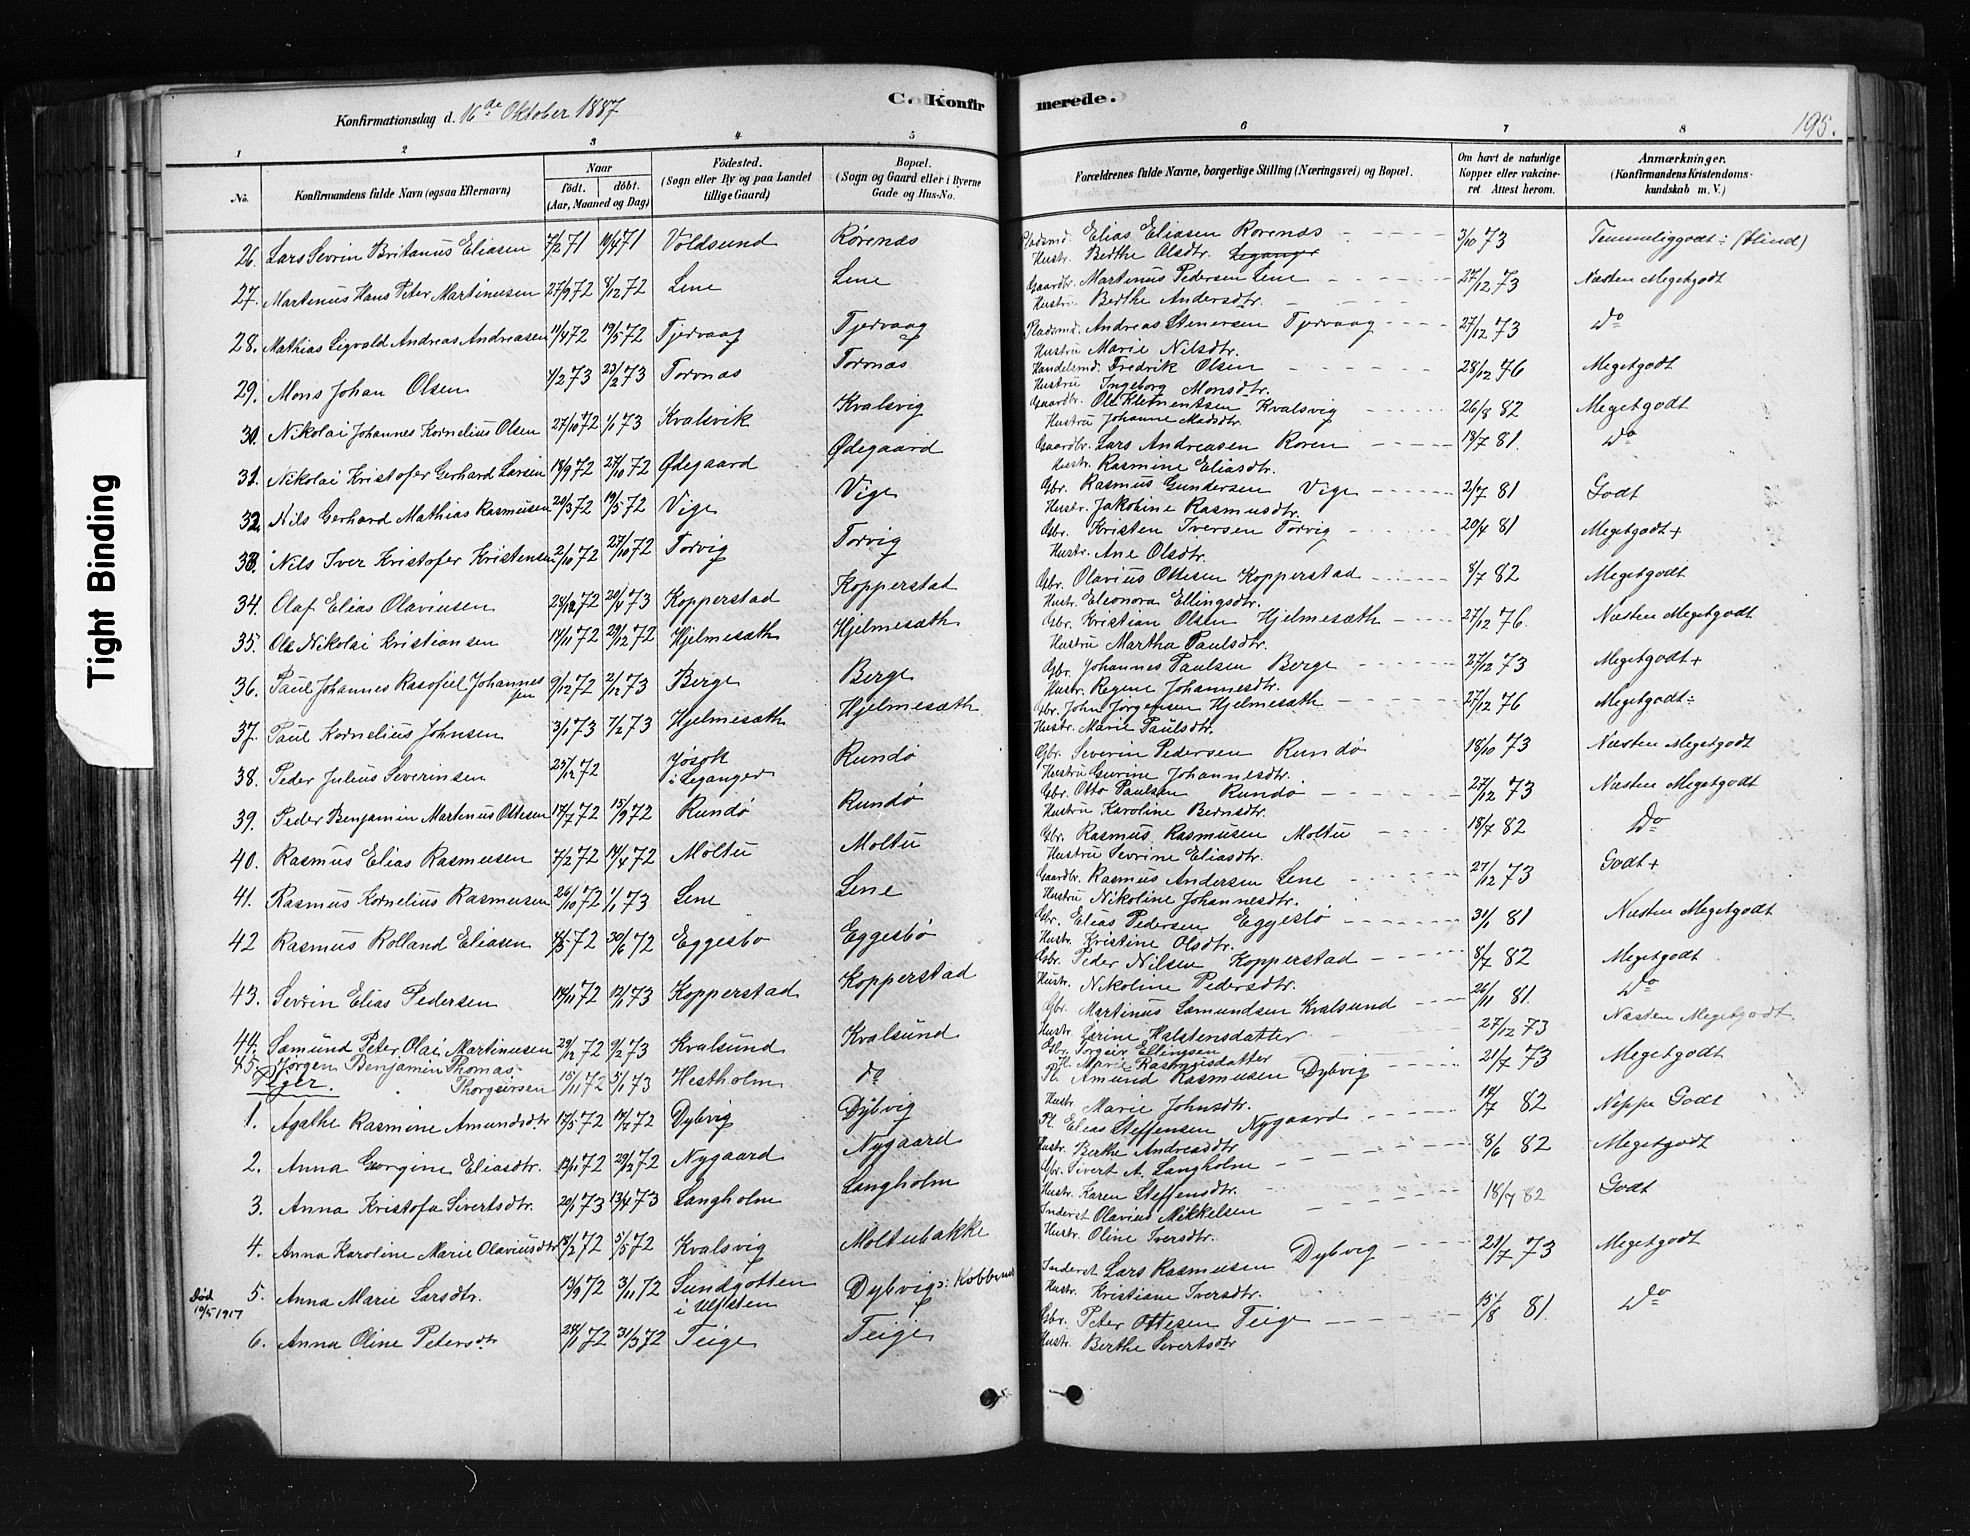 Tight Binding
C. Konfirmerede.
195.
Konfirmationsdag d. 16de Oktober 1887
1 2 3 4 5 6 7 8
No. Konfirmandens fulde Navn (ogsaa Efternavn) Naar født. døbt. (Aar, Maaned og Dag) Fødested. (Sogn eller By og paa Landet tillige Gaard) Bopæl. (Sogn og Gaard eller i Byerne Gade og Hus-No. Forældrenes fulde Navne, borgerlige Stilling (Næringsvei) og Bopæl. Om havt de naturlige Kopper eller vakcineret. Attest herom. Anmærkninger. (Konfirmandens Kristendomskundskab m. V.)
26. Lars Sevrin Britanus Eliasen 7/2 71 10/4 71 Voldsund Rørenæs Pladsmd. Elias Eliasen Rorenæs 3/10 73 Temmeliggodt÷ (blind)
Hustr. Berthe Olsdtr. Leganger
27. Martinus Hans Peter Martinusen 27/9 72 8/12 72 Lene Lene Gaardbr. Martinus Pedersen Lene 27/12 73 Næsten Megetgodt
Hustru Berthe Andersdtr.
28. Mathias Sigvald Andreas Andreasen 11/4 72 19/5 72 Tjervaag Tjervaag Pladsmd. Andreas Stenersen Tjervaag 27/12 73 Do
Hustru Marie Nilsdtr.
29. Mons Johan Olsen 1/2 73 23/2 73 Torvnæs Torvnæs Handelsmd. Fredrik Olsen 28/12 76 Megetgodt
Hustru Ingeborg Monsdtr.
30. Nikolai Johannes Kornelius Olsen 27/10 72 1/1 73 Kvalsvik Kvalsvig Gaardbr. Ole Klementsen Kvalsvig 26/8 82 Megetgodt
Hustru Johanne Madsdtr.
31. Nikolai Kristofer Gerhard Larsen 18/9 72 27/10 72 Ødegaard Ødegaard Gaardbr. Lars Andreasen Roren 18/7 81. Do
Hustr. Rasmine Eliasdtr.
32. Nils Gerhard Mathias Rasmusen 20/3 72 19/5 72 Vige Vige Gbr. Rasmus Gundersen Vige 2/7 81 Godt
Hustr. Jakobine Rasmusdtr.
33. Nils Iver Kristofer Kristensen 2/10 72 27/10 72 Torvig Torvig Gbr. Kristen Iversen Torvig 20/4 81 Megetgodt+
Hustr. Ane Olsdtr.
34. Olaf Elias Olaviusen 28/12 72 20/4 73 Kopperstad Kopperstad Gbr. Olavius Ottesen Kopperstad 8/7 82 Megetgodt
Hustr. Eleonora Ellingsdtr.
35. Ole Nikolai Kristiansen 14/11 72 29/12 72 Hjelmesæth Hjelmesæth Gbr. Kristian Olsen Hjelmesæth 27/12 76. Næsten Megetgodt
Hustru Martha Paulsdtr.
36. Paul Johannes Rasofiel Johannessen 9/12 72 2/12 73 Berge Berge Gbr. Johannes Paulsen Berge 27/12 73 Megetgodt+
Hustr. Regine Johannesdtr.
37. Paul Kornelius Johnsen 3/1 73 7/2 73 Hjelmesæth Hjelmesæth Gbr. John Jørgensen Hjelmesæth 27/12 76 Megetgodt÷
Hustr. Marie Paulsdtr.
38. Peder Julius Severinsen 25/12 72 Jøsok i Leganger Rundø Gbr. Severin Pedersen Rundø 18/10 73 Næsten Megetgodt
Hustru Gurine Johannesdtr.
39. Peder Benjamin Martinus Ottesen 17/7 72 15/9 72 Rundø Rundø Gbr. Otto Paulsen Rundø 27/12 73 Næsten Megetgodt
Hustru Karoline Berndtr.
40. Rasmus Elias Rasmusen 7/2 72 14/4 72 Moltu Moltu Gbr. Rasmus Rasmusen Moltu 18/7 82 Do
Hustru Sevrine Eliasdtr.
41. Rasmus Kornelius Rasmusen 26/10 72 1/1 73 Lene Lene Gaardbr. Rasmus Andersen Lene 27/12 73 Godt+
Hustru Nikoline Johannesdtr.
42 Rasmus Rolland Eliasen 4/5 72 30/6 72 Eggesbo Eggesbö Gbr. Elias Pedersen Eggesbö 31/1 81 Næsten Megetgodt
Hustr. Kristine Olsdtr.
43. Sevrin Elias Pedersen 14/11 72 12/1 73 Kopperstad Kopperstad Gbr. Peder Nilsen Kopperstad 8/7 82 Megetgodt
Hustr. Nikoline Pedersdtr.
44. Sæmund Peter Olai Martinusen 29/12 72 9/2 73 Kvalsund Kvalsund Gbr. Martinus Sæmundsen Kvalsund 26/11 81. Do
Hustr. Serine Halstensdatter
45. Jørgen Benjamin Thomas Thorgeirsen 15/11 72 5/1 73 Hestholm do Gbr. Torgeir Ellingsen 27/12 73 Næsten Megetgodt.
H. Marie Rasmusdatter
Piger.
1. Agathe Rasmine Amundsdtr 17/5 72 14/7 72 Dybvig Dybvig Pl. Amund Rasmusen Dybvig 21/7 73 Megetgodt
Hustr. Marie Johnsdtr.
2. Anna Georgine Eliasdtr. 12/11 72 29/12 72 Nygaard Nygaard Pl. Elias Steffensen Nygaard 14/7 82 Neppe Godt
Hustr. Berthe Andreasdtr
3. Anna Kristofa Sivertsdtr. 20/1 73 13/4 73 Langholm Langholm Gbr. Sivert A. Langholm 8/6 82 Megetgodt
Hustr. Karen Steffensdtr.
4. Anna Karoline Marie Olaviusdtr 18/2 72 5/5 72 Kvalsvig Moltubakke Inderst Olavius Mikkelsen 18/7 82 Godt
Hustr. Oline Iversdtr.
Død 10/5 1917
5. Anna Marie Larsdtr. 13/9 72 3/11 72 Sundgotten i Ulfsten Dybvig Inderst Lars Rasmusen Dybvig 21/7 73 Megetgodt
Hustr. Kristiane Iversdtr.
6. Anna Oline Petersdtr 28/1 72 31/3 72 Teige Teige Gbr. Peter Ottesen Teige 15/8 81. Do
Hustr. Berthe Sivertsdtr